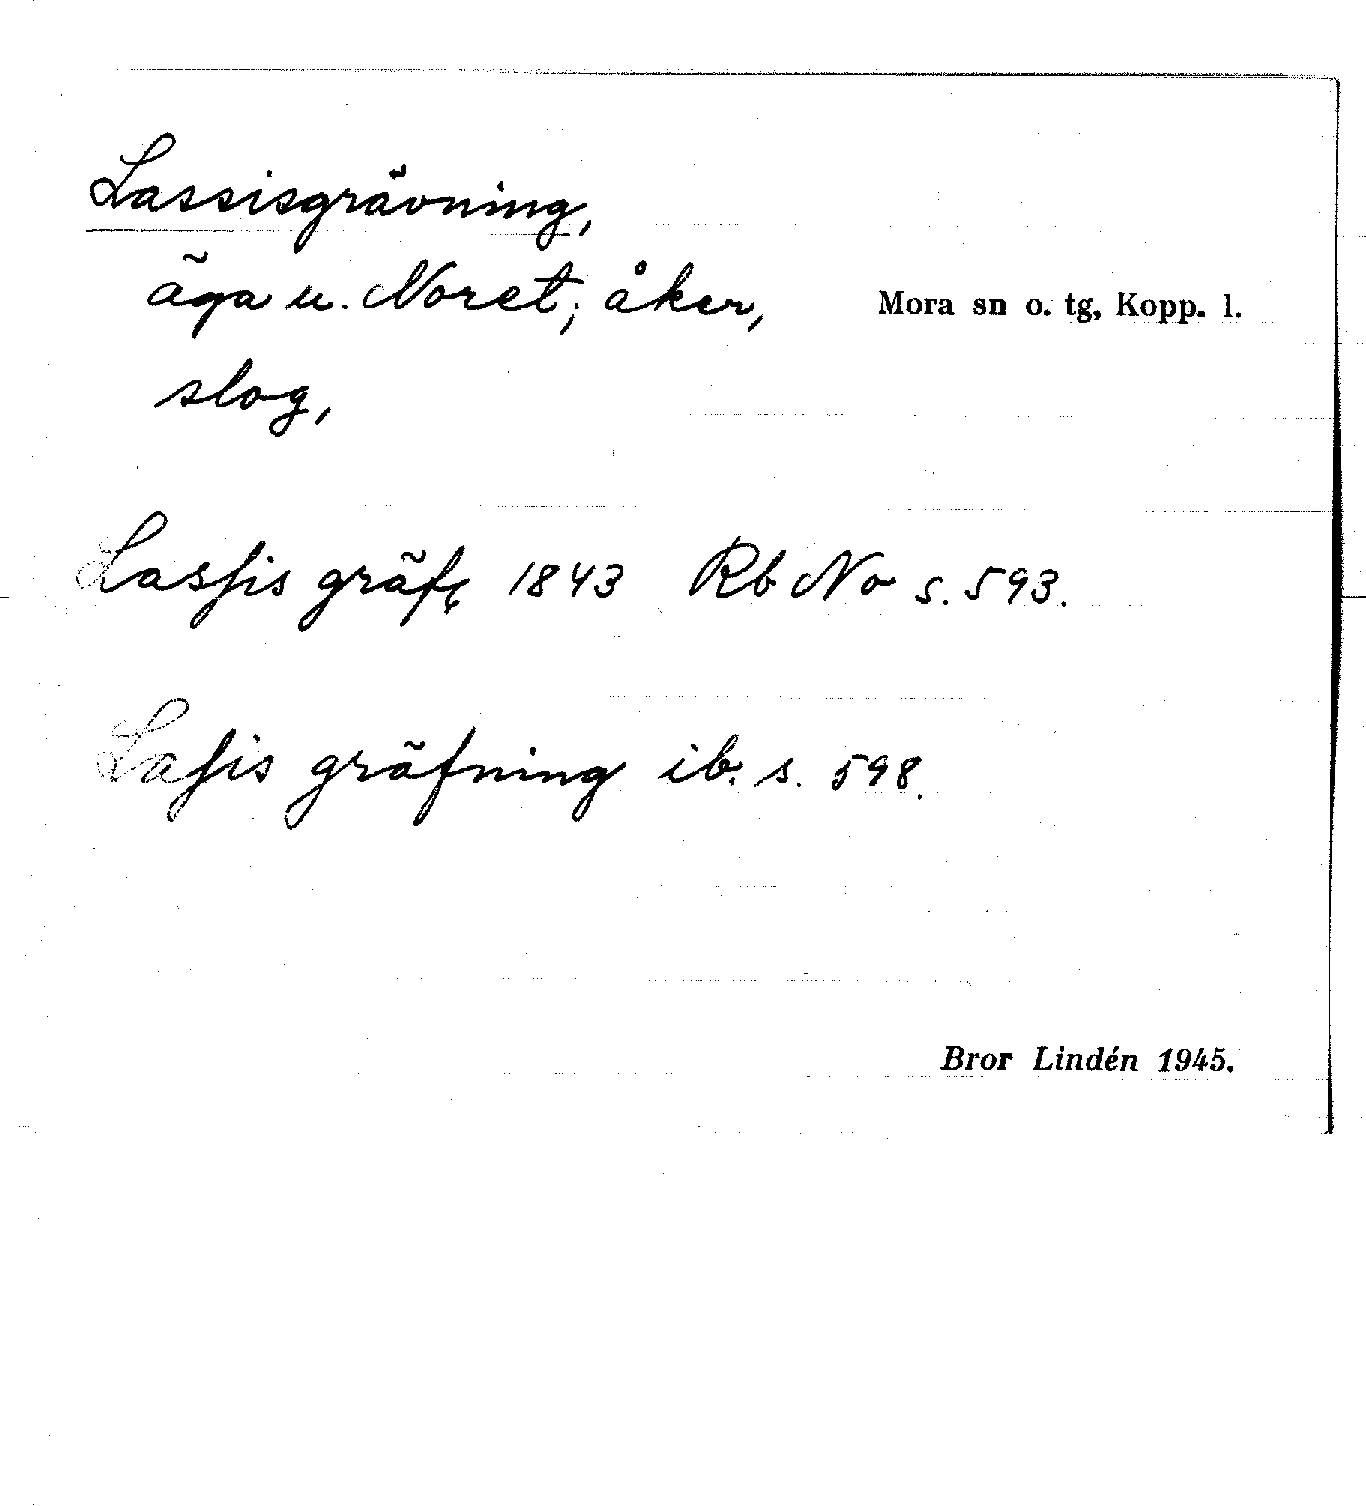 Lassisgrävning,
äga u. Noret; åker,
Mora sn o. tg, Kopp. l.
slog,
Lasſis gräf: 1843 Rb No s. 593.
Laſis gräfning ib. s. 598.
Bror Lindén 1945.